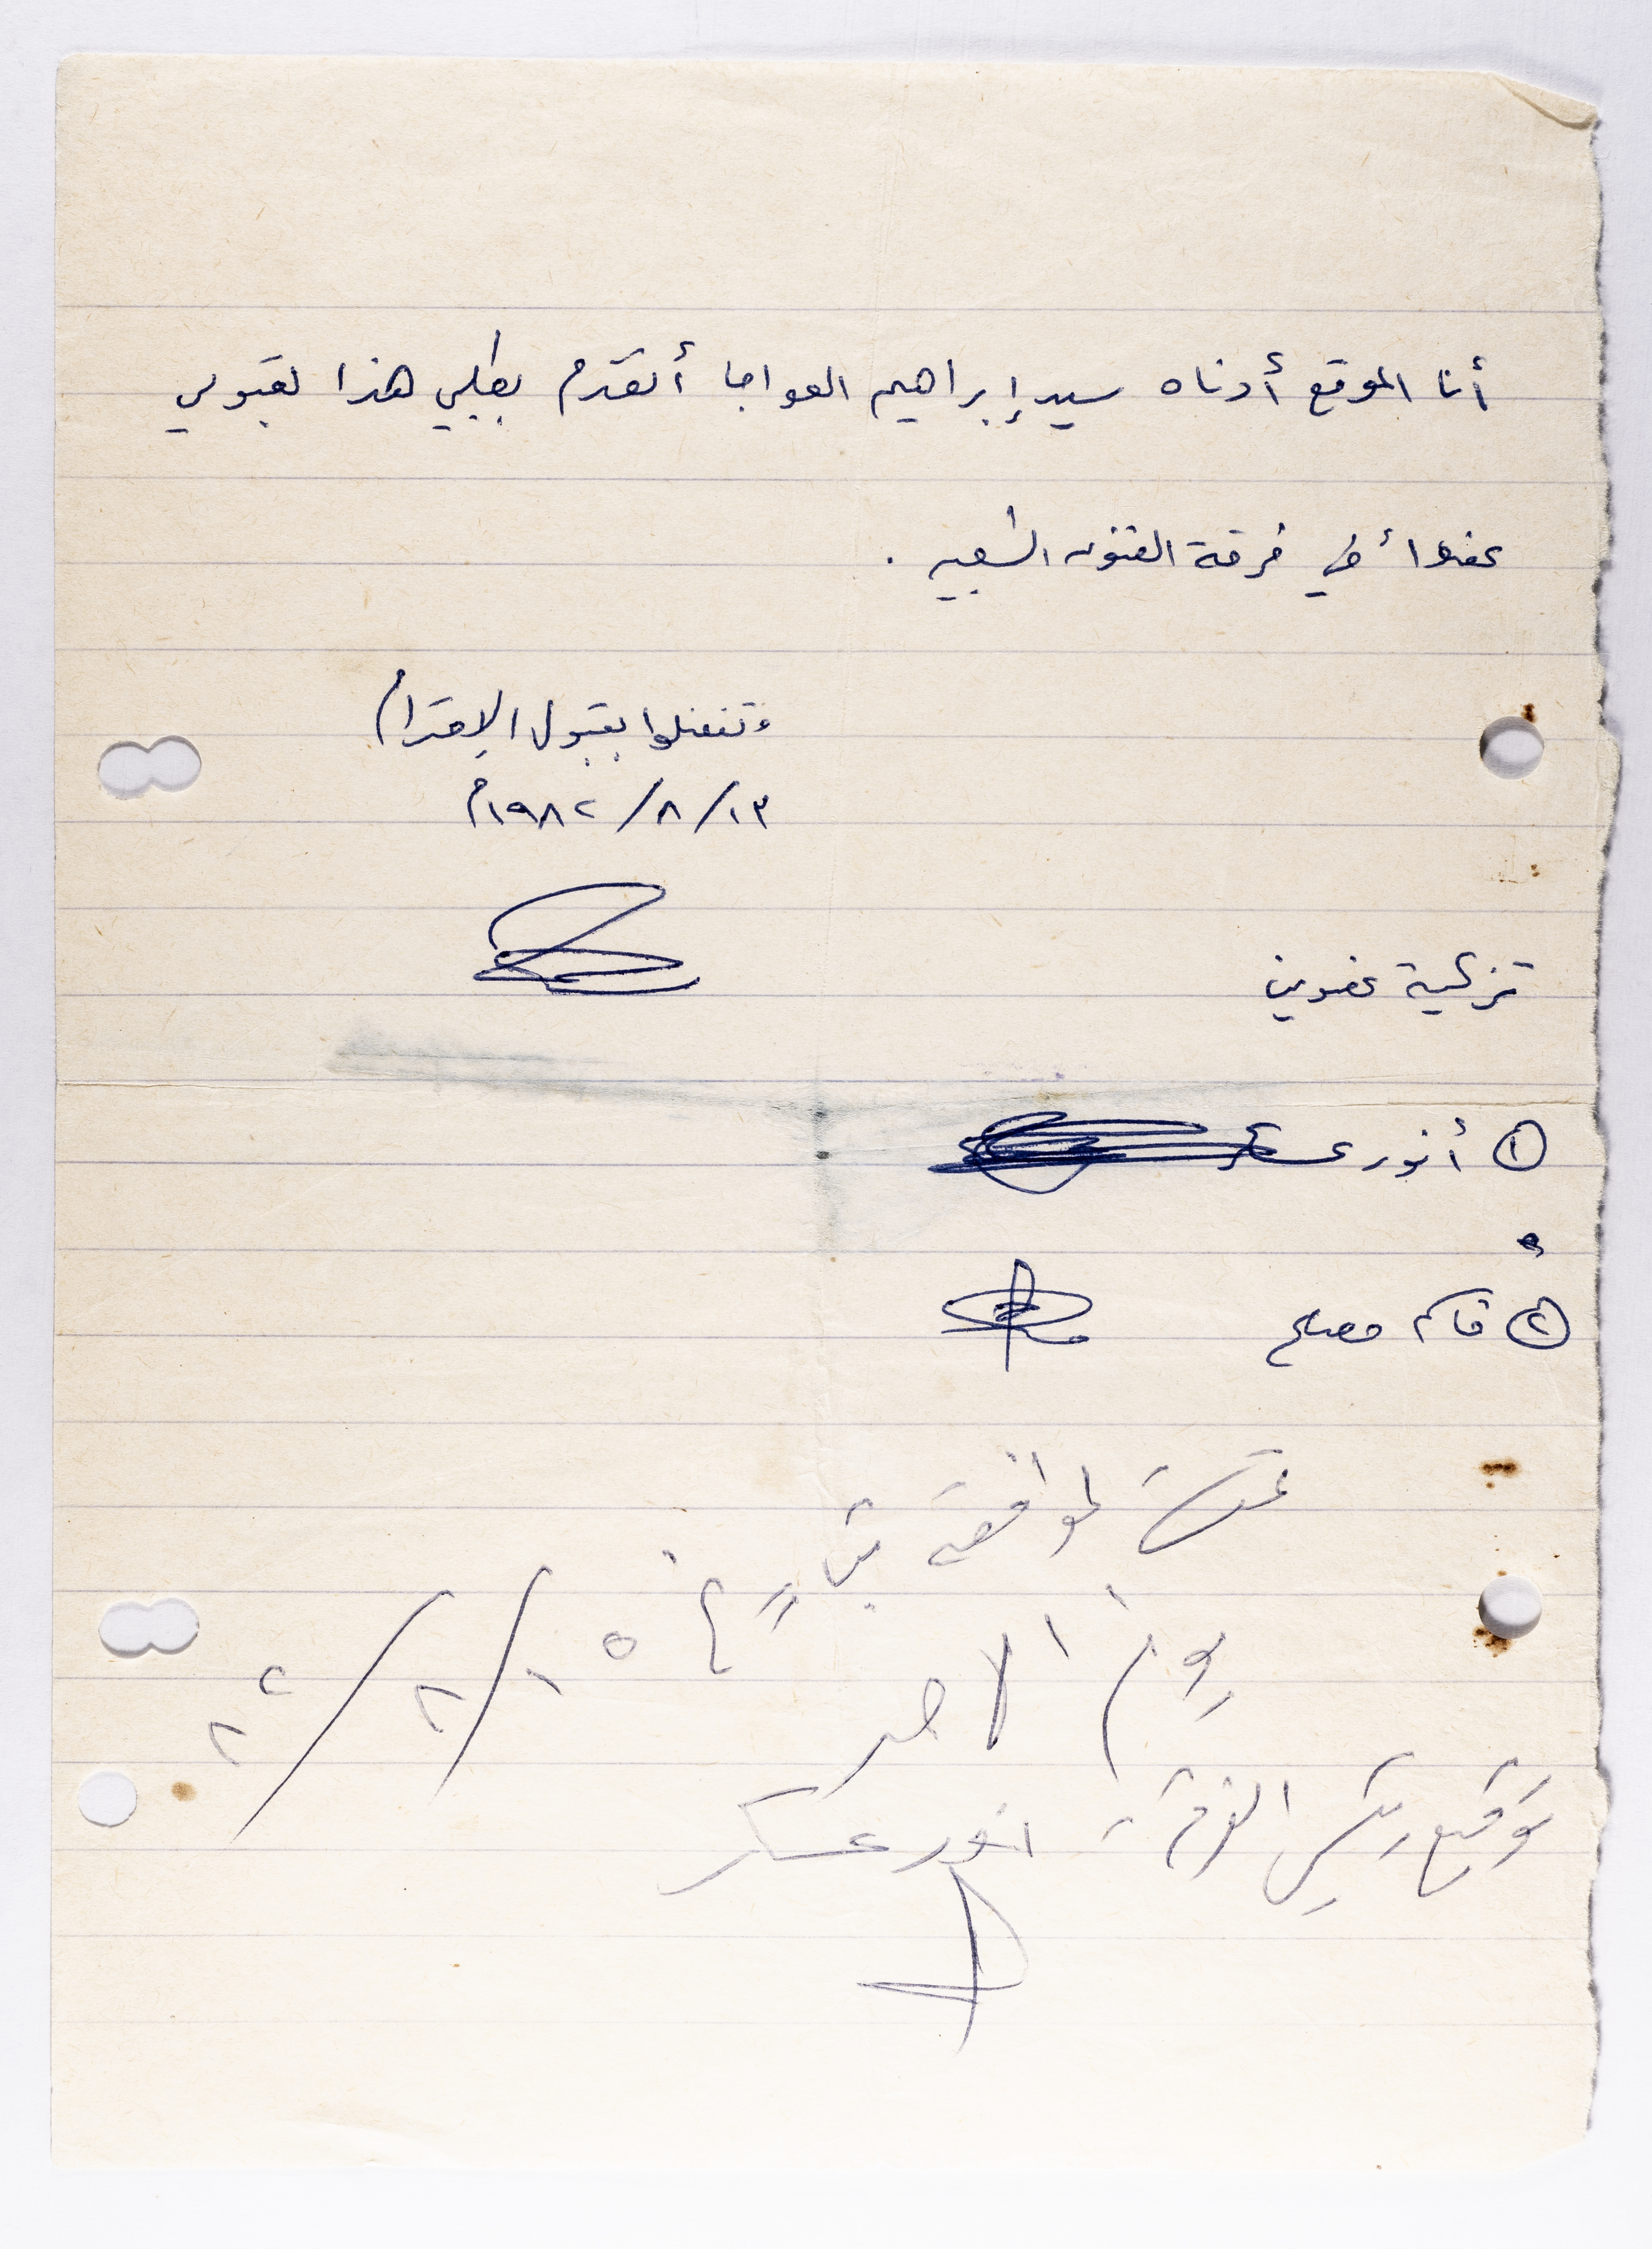 أنا الموقع أدناه سيد إبراهيم العواجا أتقدم بطلبي هذا لقبولي
عضواً في فرقة الفنون الشعبيه .
وتفضلوا بقبول الإحترام
١٣/٨/١٩٨٢م
تزكية عضوين
① أنور عسكر
② قاسم مصلح
تمت الموافقة بتاريخ ١٥/٨/٨٢
يوم الاحد
توقيع رئيس الفرقة انور عسكر